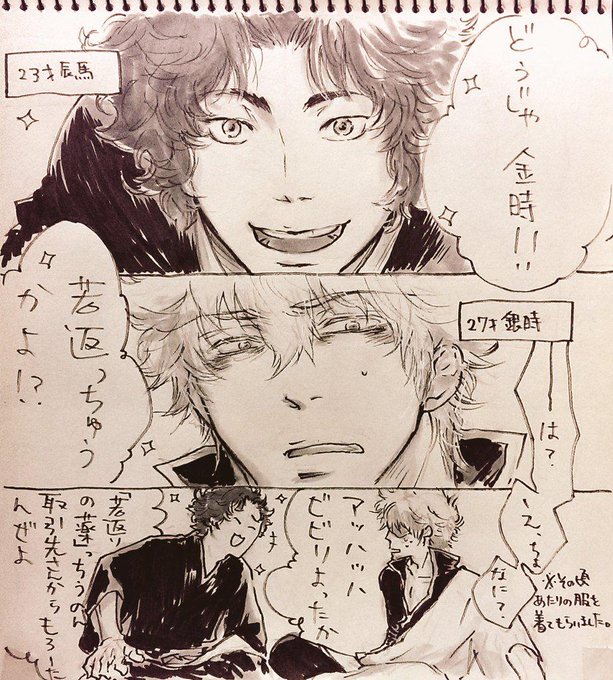 どうじゃ
金時!!
23才辰馬
27才銀時
は?
若返っちゅう
かよ!?
え、ちょ
なに?
※その頃
あたりの服を
着てもらいました。
アッハッハ
ビビりよったか
「若返り
の薬」っちうのん
取引先さんからもろーた
んぜよ